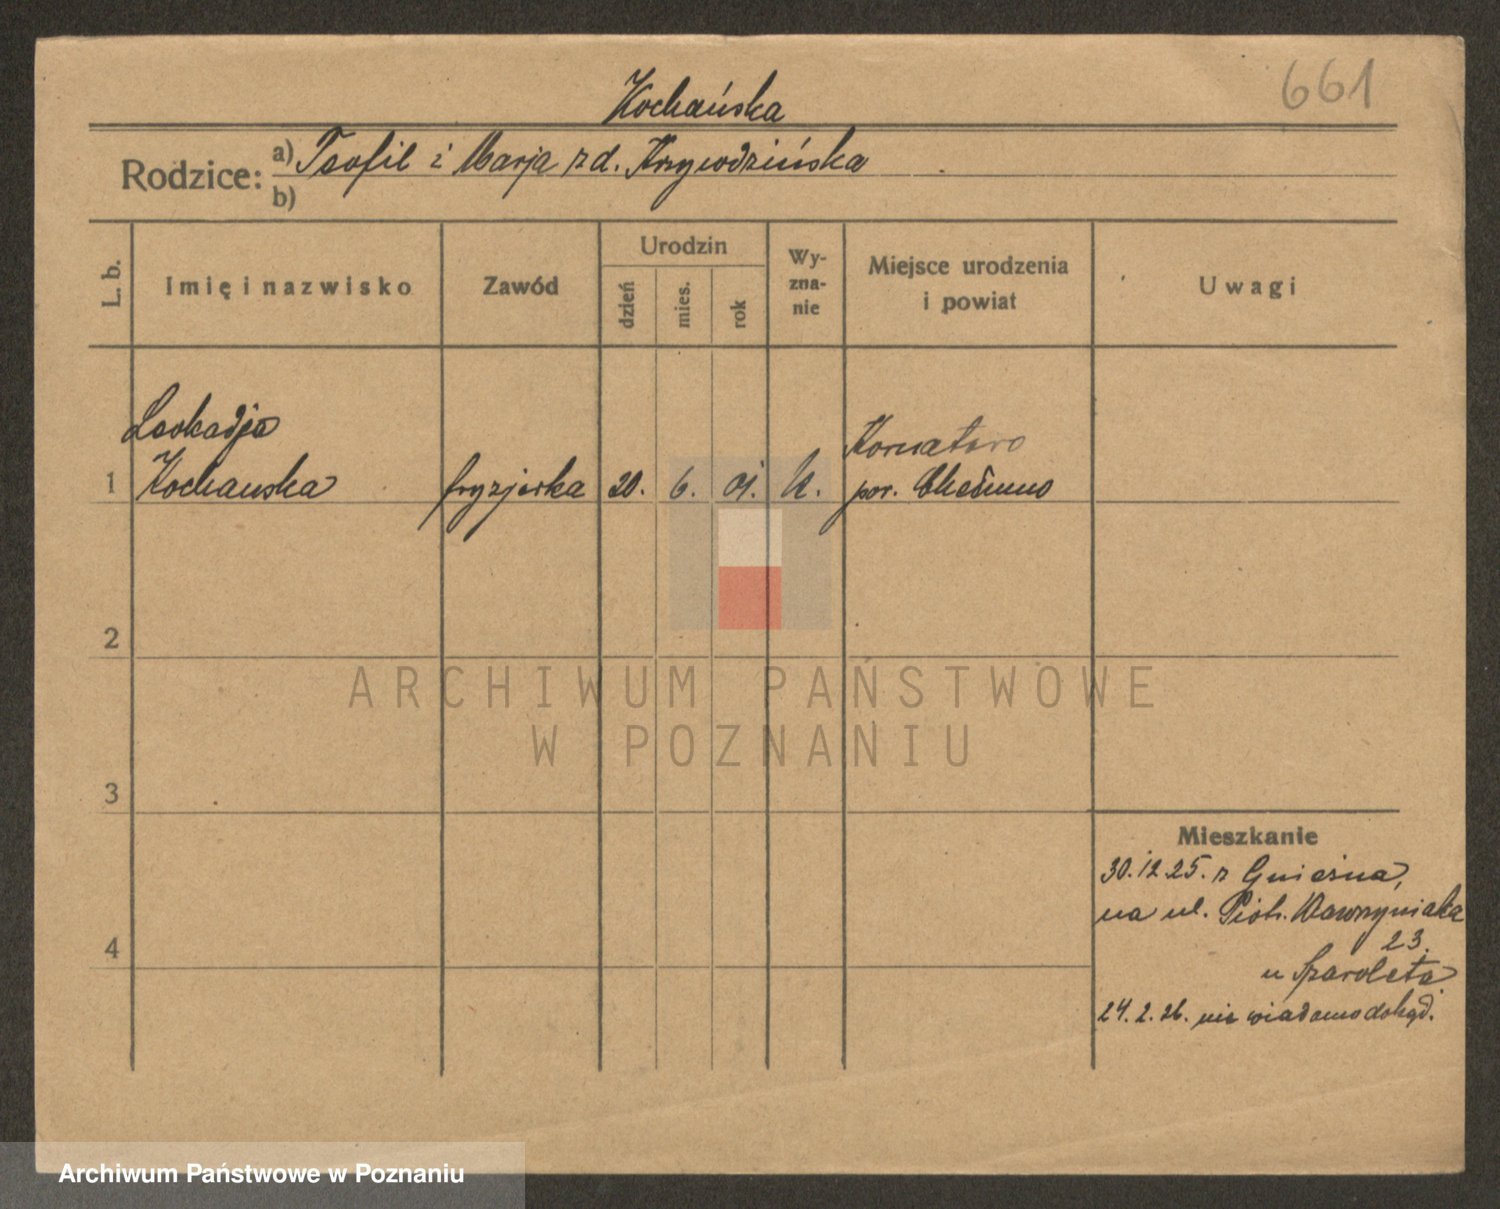 661
Kochańska
Rodzice: a) Teofil i Marja z d. Krzywdzińska
b)
L. b.
Imię i nazwisko
Zawód
Urodzin
dzień
mies.
rok
Wy-
zna-
nie
Miejsce urodzenia
i powiat
Uwagi
Leokadja
1 Kochanska fryzjerka 20. 6. 01. k. Kornatowo
pow. Chełmno
2
3
4
Mieszkanie
30.12.25. z Gniezna,
na ul. Piotr. Wawrzyniaka
23.
u Szaroleta
24.2.26. nie wiadomo dokąd.
ARCHIWUM PAŃSTWOWE
W POZNANIU
Archiwum Państwowe w Poznaniu